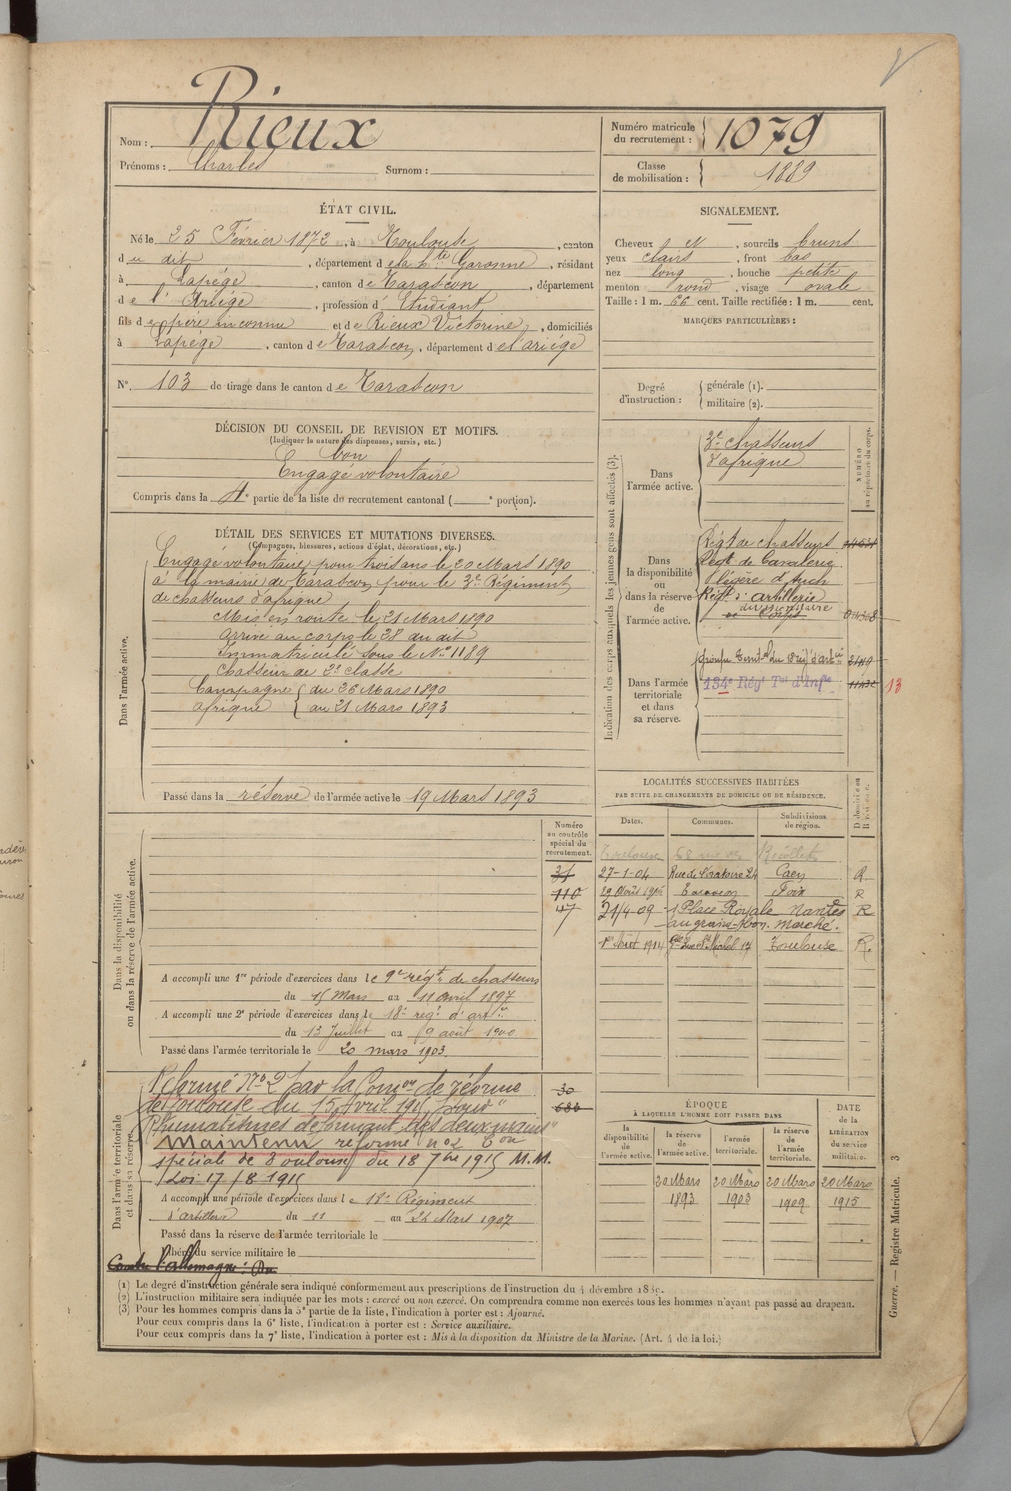 Nom : Rieux
Prénoms : Charles Surnom :
Numéro matricule du recrutement : 1079
Classe de mobilisation : 1889
ÉTAT CIVIL.
Né le 25 Février 1872, à Toulouse, canton
du dit, département de la Hte Garonne, résidant
à Lapège, canton de Tarascon, département
de l'Ariège, profession d'Etudiant
fils de père inconnu et de Rieux Victorine, domiciliés
à Lapège, canton de Tarascon, département de l'ariège
N° 103 de tirage dans le canton de Tarascon
DÉCISION DU CONSEIL DE REVISION ET MOTIFS.
(Indiquer la nature des dispenses, sursis, etc.)
bon
Engagé volontaire
Compris dans la 4e partie de la liste du recrutement cantonal ( e portion).
SIGNALEMENT.
Cheveux , sourcils bruns
yeux clairs, front bas
nez long, bouche petite
menton rond, visage ovale
Taille : 1 m. 66 cent. Taille rectifiée : 1 m. cent.
MARQUES PARTICULIÈRES :
Degré d'instruction : générale (1).
militaire (2).
DÉTAIL DES SERVICES ET MUTATIONS DIVERSES.
(Campagnes, blessures, actions d'éclat, décorations, etc.)
Dans l'armée active.
Engagé volontaire pour trois ans le 20 Mars 1890
à la mairie de Tarascon pour le 3e Régiment
de chasseurs d'afrique
Mis en route le 21 Mars 1890
arrivé au corps le 28 du dit
Immatriculé sous le No 1189
chasseur de 2e classe
Campagne du 26 Mars 1890
afrique au 21 Mars 1893
Passé dans la réserve de l'armée active le 19 Mars 1893
Indication des corps auxquels les jeunes gens sont affectés (3).
NUMÉRO au répertoire du corps.
Dans l'armée active.
3e chasseurs
d'afrique
Dans la disponibilité ou dans la réserve de l'armée active.
Régt de chasseurs
Regt de Cavalerie
légère d'Auch
Régt d'artillerie
divisionnaire
Dans l'armée territoriale et dans sa réserve.
134e Régt Tal d'Infie
13
LOCALITÉS SUCCESSIVES HABITÉES
PAR SUITE DE CHANGEMENTS DE DOMICILE OU DE RÉSIDENCE.
Dates. Communes. Subdivisions de région. D domicile ou R résidence.
Toulouse 68 rue des Récollets
27-1-04 Rue de l'oratoire 24 Caen R
Tarascon Foix R
21/4-09 1 Place Royale Nantes R
au grand Bon Marché.
1er Août 1914 St Michel 17 Toulouse R.
Numéro au contrôle spécial du recrutement.
31
110
47
Dans la disponibilité ou dans la réserve de l'armée active.
A accompli une 1re période d'exercices dans le 9e régt de chasseurs
du 15 Mars au 11 avril 1897
A accompli une 2e période d'exercices dans le 18e regt d'artie
du 13 Juillet au 9 août 1900
Passé dans l'armée territoriale le 20 mars 1903.
Dans l'armée territoriale et dans sa réserve.
Réformé No 2 par la Comon de réforme
de Toulouse du 15 Avril 191 , pour "
Rhumatismes déformant des deux mains"
Maintenu réformé no 2 Con
spéciale de Toulouse du 18 7bre 1915 M.M.
Loi 17/8-1915
30
686
A accompli une période d'exercices dans le 18e Régiment
d'artillerie du 11 au 24 Mars 1907
Passé dans la réserve de l'armée territoriale le
Libéré du service militaire le
Contre l'allemagne : Du
ÉPOQUE À LAQUELLE L'HOMME DOIT PASSER DANS
la disponibilité de l'armée active. la réserve de l'armée active. l'armée territoriale. la réserve de l'armée territoriale. DATE de la LIBÉRATION du service militaire.
20 Mars 1893 20 Mars 1903 20 Mars 1909 20 Mars 1915
(1) Le degré d'instruction générale sera indiqué conformément aux prescriptions de l'instruction du 4 décembre 18
(2) L'instruction militaire sera indiquée par les mots : exercé ou non exercé. On comprendra comme non exercés tous les hommes n'ayant pas passé au drapeau.
(3) Pour les hommes compris dans la 5e partie de la liste, l'indication à porter est : Ajourné.
Pour ceux compris dans la 6e liste, l'indication à porter est : Service auxiliaire.
Pour ceux compris dans la 7e liste, l'indication à porter est : Mis à la disposition du Ministre de la Marine. (Art. 4 de la loi.)
Guerre. — Registre Matricule. 3